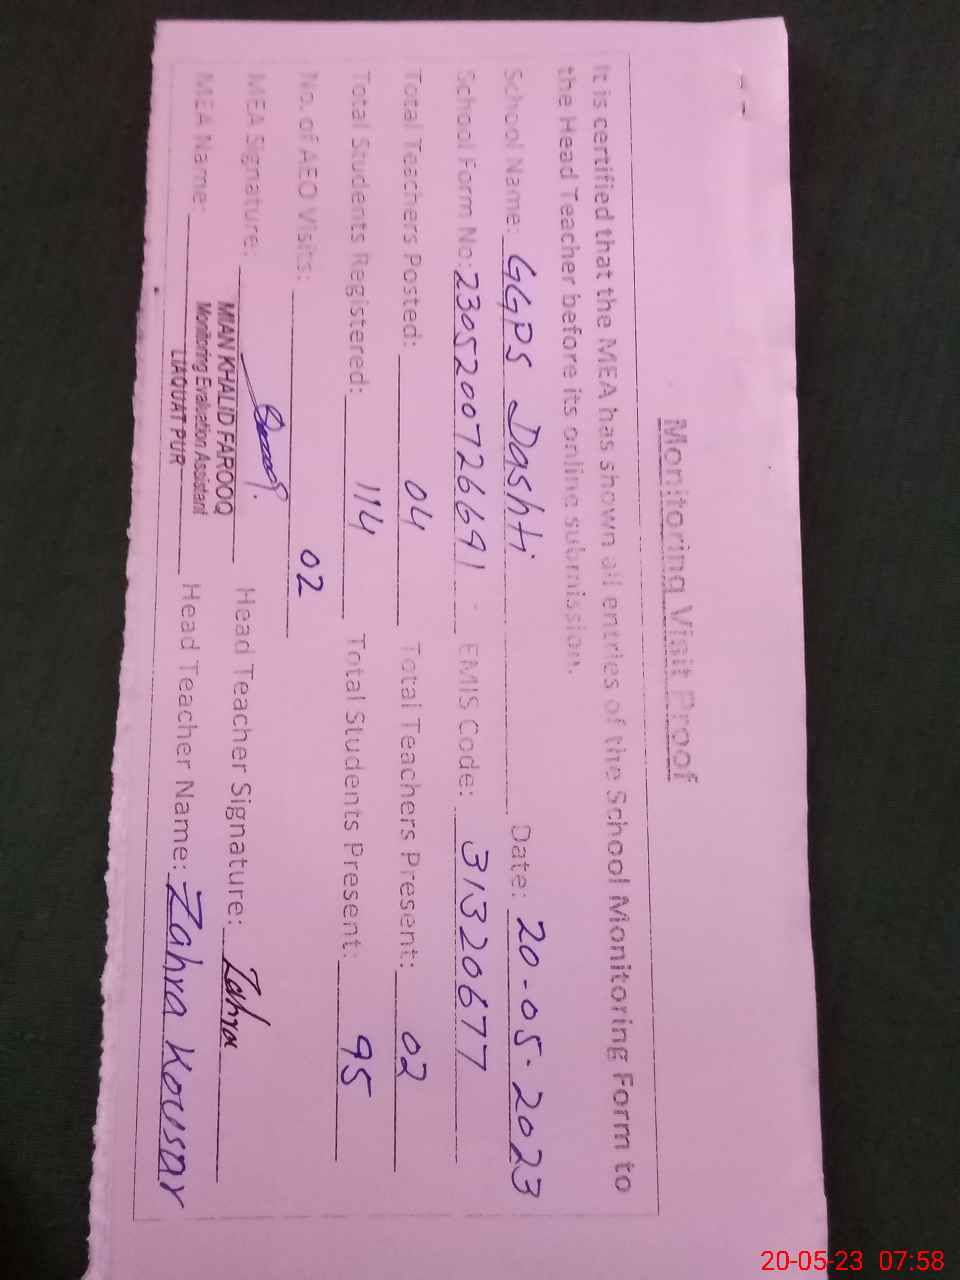 Monitoring Visit Proof
It is certified that the MEA has shown all entries of the School Monitoring Form to
the Head Teacher before its online submission.
School Name: GGPS Dashti Date: 20-05-2023
School Form No: 2305200726691 EMIS Code: 31320677
Total Teachers Posted: 04 Total Teachers Present: 02
Total Students Registered: 114 Total Students Present: 95
No. of AEO Visits: 02
MEA Signature: Head Teacher Signature: Zahra
MIAN KHALID FAROOQ
Monitoring Evaluation Assistant
LIAQUAT PUR
MEA Name: Head Teacher Name: Zahra Kousar
20-05-23 07:58